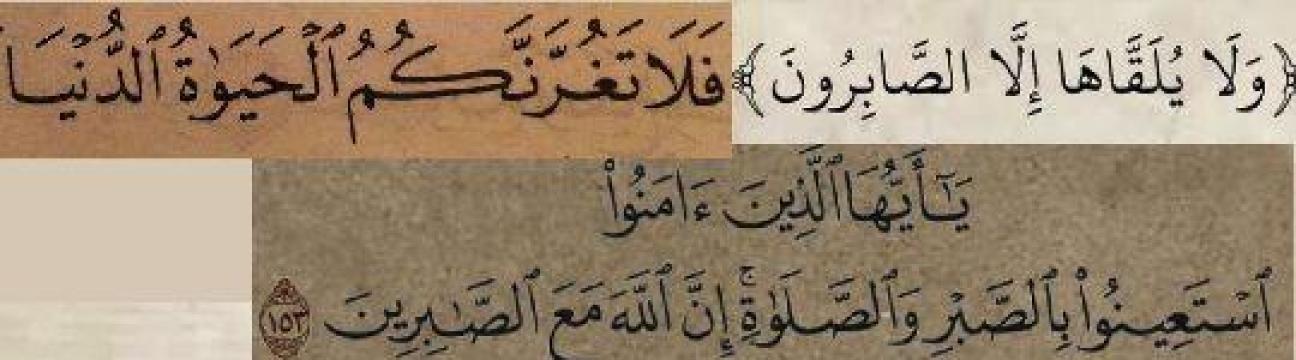 ﴿وَلَا يُلَقَّاهَا إِلَّا الصَّابِرُونَ﴾
فَلَا تَغُرَّنَّكُمُ ٱلْحَيَوٰةُ ٱلدُّنْيَا
يَـٰٓأَيُّهَا ٱلَّذِينَ ءَامَنُوا۟
ٱسْتَعِينُوا۟ بِٱلصَّبْرِ وَٱلصَّلَوٰةِۚ إِنَّ ٱللَّهَ مَعَ ٱلصَّـٰبِرِينَ ١٥٣